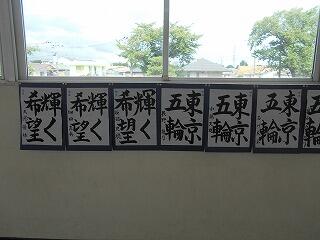 輝く
希望
輝く
希望
輝く
希望
東京
五輪
東京
五輪
東京
五輪
五輪